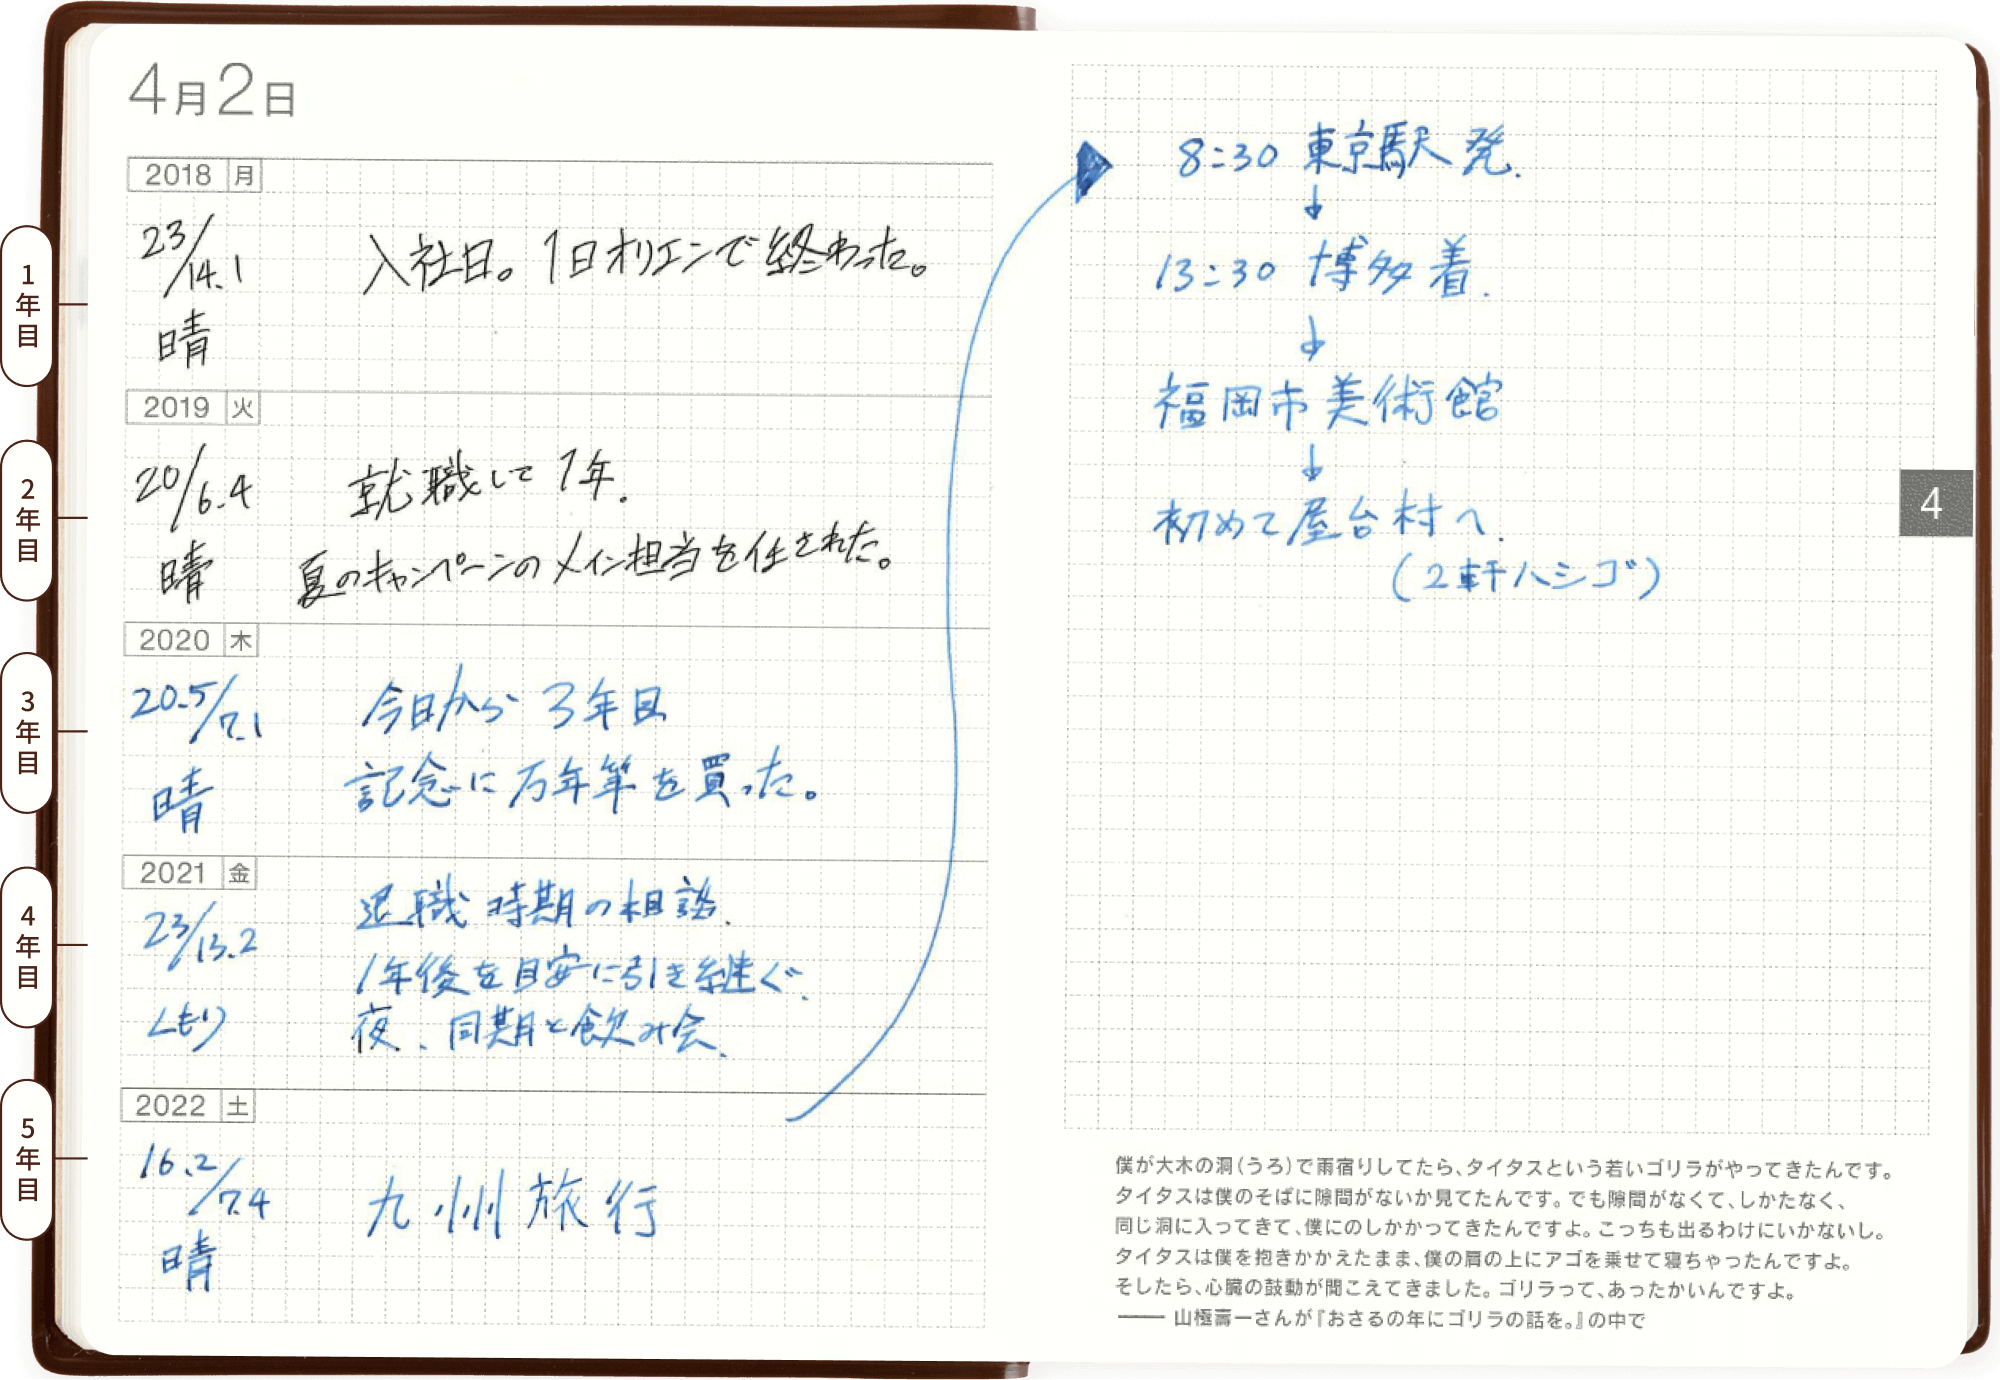 4月2日
1年目
2018 月
23/14.1
晴
入社日。1日オリエンで終わった。
2年目
2019 火
20/6.4
晴
就職して1年.
夏のキャンペーンのメイン担当を任された。
3年目
2020 木
20.5/7.1
晴
今日から3年目
記念に万年筆を買った。
4年目
2021 金
23/13.2
くもり
退職時期の相談.
1年後を目安に引き継ぐ.
夜、同期と飲み会.
5年目
2022 土
16.2/7.4
晴
九州旅行
8:30 東京駅発.
↓
13:30 博多着.
↓
福岡市美術館
↓
初めて屋台村へ.
(2軒ハシゴ)
4
僕が大木の洞(うろ)で雨宿りしてたら、タイタスという若いゴリラがやってきたんです。
タイタスは僕のそばに隙間がないか見てたんです。でも隙間がなくて、しかたなく、
同じ洞に入ってきて、僕にのしかかってきたんですよ。こっちも出るわけにいかないし。
タイタスは僕を抱きかかえたまま、僕の肩の上にアゴを乗せて寝ちゃったんですよ。
そしたら、心臓の鼓動が聞こえてきました。ゴリラって、あったかいんですよ。
―― 山極壽一さんが『おさるの年にゴリラの話を。』の中で